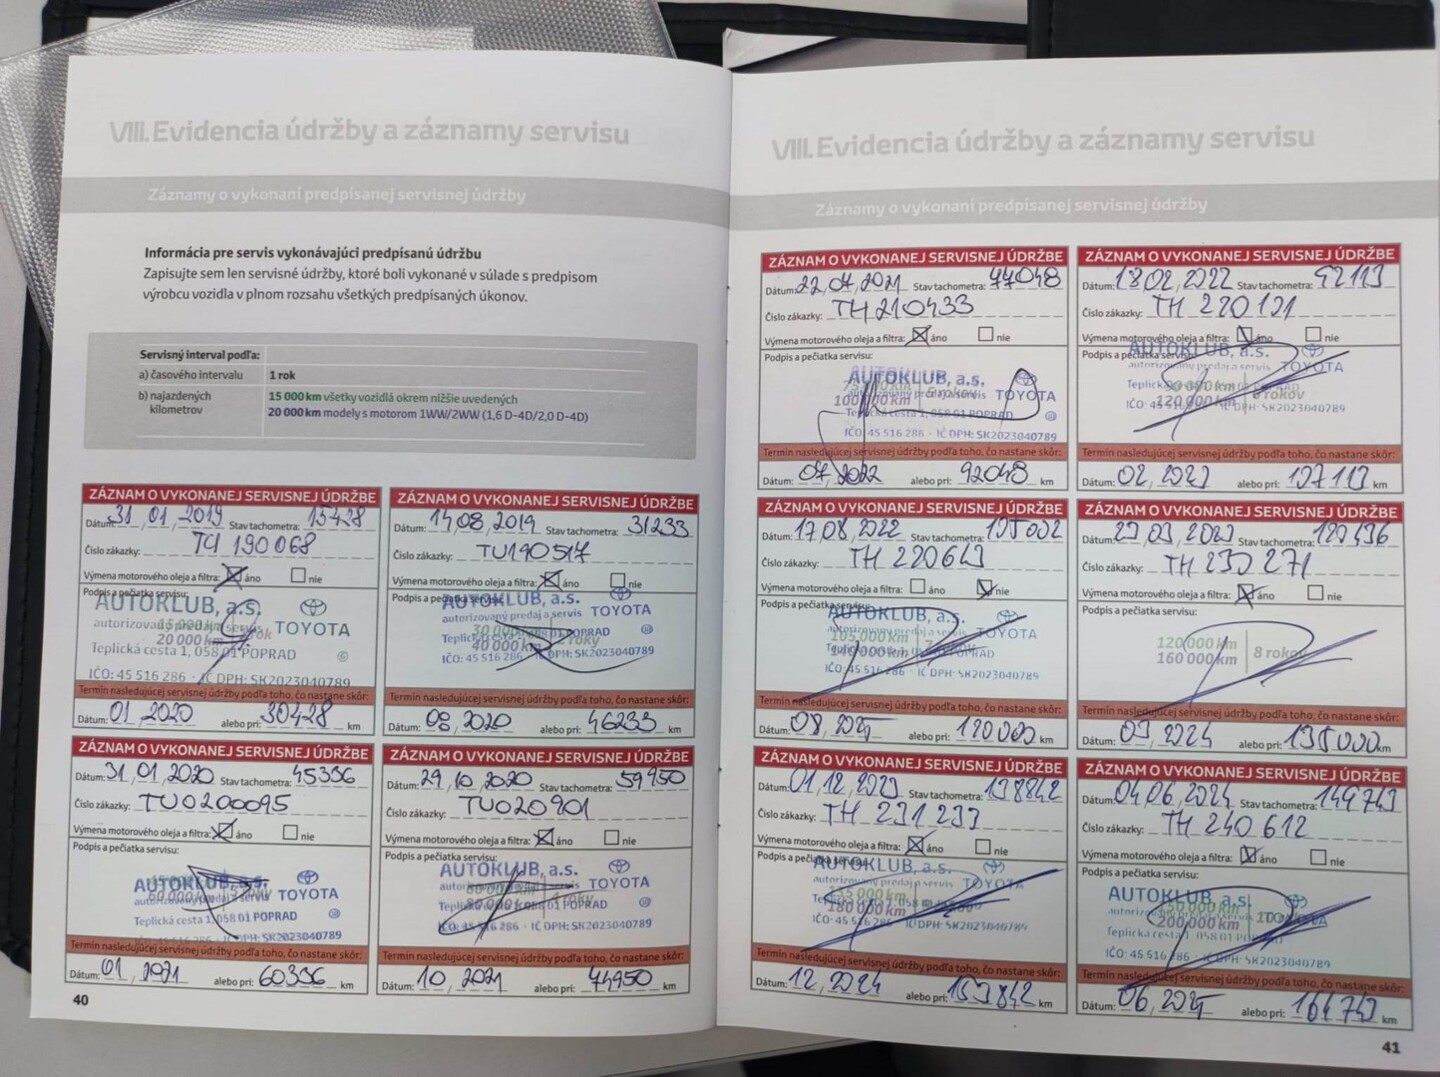 VIII. Evidencia údržby a záznamy servisu
Záznamy o vykonaní predpísanej servisnej údržby
Informácia pre servis vykonávajúci predpísanú údržbu
Zapisujte sem len servisné údržby, ktoré boli vykonané v súlade s predpisom
výrobcu vozidla v plnom rozsahu všetkých predpísaných úkonov.
Servisný interval podľa:
a) časového intervalu 1 rok
b) najazdených kilometrov 15 000 km všetky vozidlá okrem nižšie uvedených
20 000 km modely s motorom 1WW/2WW (1,6 D-4D/2,0 D-4D)
ZÁZNAM O VYKONANEJ SERVISNEJ ÚDRŽBE
Dátum: 31, 01, 2019 Stav tachometra: 15428
Číslo zákazky: TU 190068
Výmena motorového oleja a filtra: áno nie
Podpis a pečiatka servisu:
AUTOKLUB, a.s.
autorizovaný predaj a servis TOYOTA
15 000 km
20 000 km rok
Teplická cesta 1, 058 01 POPRAD
IČO: 45 516 286 - IČ DPH: SK2023040789
Termín nasledujúcej servisnej údržby podľa toho, čo nastane skôr:
Dátum: 01, 2020 alebo pri: 30428 km
ZÁZNAM O VYKONANEJ SERVISNEJ ÚDRŽBE
Dátum: 14, 08, 2019 Stav tachometra: 31233
Číslo zákazky: TU190517
Výmena motorového oleja a filtra: áno nie
Podpis a pečiatka servisu:
AUTOKLUB, a.s.
autorizovaný predaj a servis TOYOTA
30 000 km
40 000 km 2 roky
Teplická cesta 058 01 POPRAD
IČO: 45 516 286 - IČ DPH: SK2023040789
Termín nasledujúcej servisnej údržby podľa toho, čo nastane skôr:
Dátum: 08, 2020 alebo pri: 46233 km
ZÁZNAM O VYKONANEJ SERVISNEJ ÚDRŽBE
Dátum: 31, 01, 2020 Stav tachometra: 45336
Číslo zákazky: TU0200095
Výmena motorového oleja a filtra: áno nie
Podpis a pečiatka servisu:
AUTOKLUB, a.s.
predaj a servis TOYOTA
Teplická cesta 1, 058 01 POPRAD
IČ DPH: SK2023040789
Termín nasledujúcej servisnej údržby podľa toho, čo nastane skôr:
Dátum: 01, 2021 alebo pri: 60336 km
ZÁZNAM O VYKONANEJ SERVISNEJ ÚDRŽBE
Dátum: 29, 10, 2020 Stav tachometra: 59950
Číslo zákazky: TU020901
Výmena motorového oleja a filtra: áno nie
Podpis a pečiatka servisu:
AUTOKLUB, a.s.
predaj a servis TOYOTA
60 000 km
80 000 km 4 roky
Teplická cesta 01 POPRAD
IČO: 45 516 286 - IČ DPH: SK2023040789
Termín nasledujúcej servisnej údržby podľa toho, čo nastane skôr:
Dátum: 10, 2021 alebo pri: 74950 km
40
VIII. Evidencia údržby a záznamy servisu
Záznamy o vykonaní predpísanej servisnej údržby
ZÁZNAM O VYKONANEJ SERVISNEJ ÚDRŽBE
Dátum: 22, 07, 2021 Stav tachometra: 77048
Číslo zákazky: TH210433
Výmena motorového oleja a filtra: áno nie
Podpis a pečiatka servisu:
AUTOKLUB, a.s.
TOYOTA
Teplická cesta 1, 058 01 POPRAD
IČO: 45 516 286 - IČ DPH: SK2023040789
Termín nasledujúcej servisnej údržby podľa toho, čo nastane skôr:
Dátum: 07, 2022 alebo pri: 92048 km
ZÁZNAM O VYKONANEJ SERVISNEJ ÚDRŽBE
Dátum: 18, 02, 2022 Stav tachometra: 92113
Číslo zákazky: TH 220121
Výmena motorového oleja a filtra: áno nie
Podpis a pečiatka servisu:
AUTOKLUB, a.s.
autorizovaný predaj a servis TOYOTA
90 000 km
120 000 km 6 rokov
IČ DPH: SK2023040789
Termín nasledujúcej servisnej údržby podľa toho, čo nastane skôr:
Dátum: 02, 2023 alebo pri: 107113 km
ZÁZNAM O VYKONANEJ SERVISNEJ ÚDRŽBE
Dátum: 17, 08, 2022 Stav tachometra: 105002
Číslo zákazky: TH 220643
Výmena motorového oleja a filtra: áno nie
Podpis a pečiatka servisu:
AUTOKLUB, a.s.
TOYOTA
105 000 km
140 000 km
IČO: 45 516 286 - IČ DPH: SK2023040789
Termín nasledujúcej servisnej údržby podľa toho, čo nastane skôr:
Dátum: 08, alebo pri: 120000 km
ZÁZNAM O VYKONANEJ SERVISNEJ ÚDRŽBE
Dátum: 03, 2023 Stav tachometra: 120436
Číslo zákazky: TH 230 271
Výmena motorového oleja a filtra: áno nie
Podpis a pečiatka servisu:
120 000 km
160 000 km 8 rokov
Termín nasledujúcej servisnej údržby podľa toho, čo nastane skôr:
Dátum: 03, 2024 alebo pri: 135000 km
ZÁZNAM O VYKONANEJ SERVISNEJ ÚDRŽBE
Dátum: 01, 12, 2023 Stav tachometra: 138842
Číslo zákazky: TH 231 233
Výmena motorového oleja a filtra: áno nie
Podpis a pečiatka servisu:
AUTOKLUB, a.s.
autorizovaný predaj a servis TOYOTA
180 000 km
IČO: 45 516 286 IČ DPH: SK2023040789
Termín nasledujúcej servisnej údržby podľa toho, čo nastane skôr:
Dátum: 12, 2024 alebo pri: 153842 km
ZÁZNAM O VYKONANEJ SERVISNEJ ÚDRŽBE
Dátum: 04, 06, 2024 Stav tachometra: 149743
Číslo zákazky: TH 240 612
Výmena motorového oleja a filtra: áno nie
Podpis a pečiatka servisu:
AUTOKLUB, a.s.
150 000 km
200 000 km
Teplická cesta 058 01
IČO: 45 516 286 - IČ DPH: SK2023040789
Termín nasledujúcej servisnej údržby podľa toho, čo nastane skôr:
Dátum: 06, 2025 alebo pri: 164743 km
41